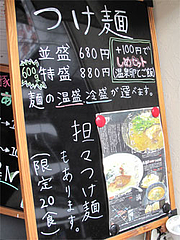 つけ麺
並盛 680円
600g 特盛 880円
+100円で
しめセット
温泉卵とご飯
麺の温盛 冷盛が選べます。
担々つけ麺
もあります。
限定20食